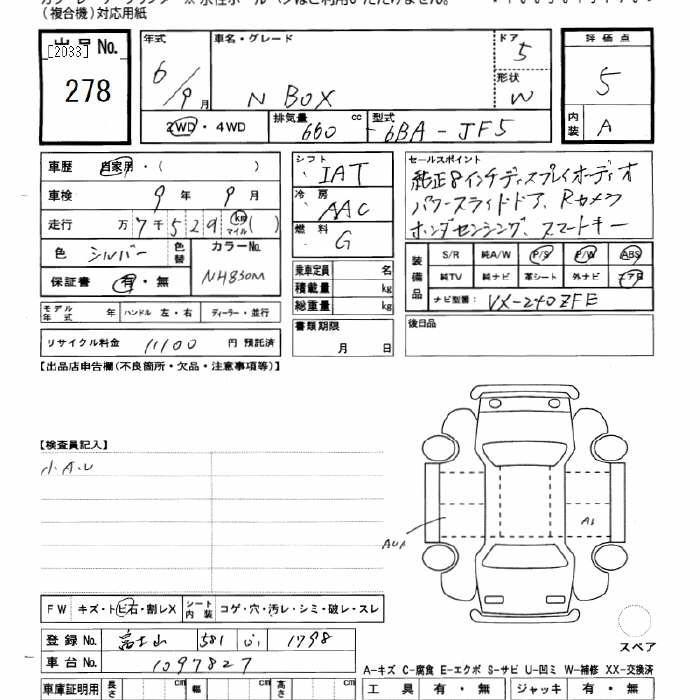 (複合機)対応用紙
出品No.
[2033]
278
年式 6/9月
車名・グレード N BOX
ドア 5
形状 W
2WD・4WD
排気量 660 cc
型式 6BA-JF5
評価点 5
内装 A
車歴 自家用・( )
車検 9年 9月
走行 万 7千529 km マイル ( )
色 シルバー 色替 カラーNo. NH830M
保証書 有・無
モデル年式 年 ハンドル 左・右 ディーラー・並行
リサイクル料金 11100 円 預託済
シフト IAT
冷房 AAC
燃料 G
乗車定員 名
積載量 kg
総重量 kg
書類期限
月 日
セールスポイント
純正8インチディスプレイオーディオ
パワースライドドア、Rカメラ
ホンダセンシング、スマートキー
装備品 S/R 純A/W P/S P/W ABS
純TV 純ナビ 革シート 外ナビ エアB
ナビ型番: VX-240ZFE
後日品
【出品店申告欄(不良箇所・欠品・注意事項等)】
【検査員記入】
小A.U
AUA
A1
FW キズ・トビ石・割レX シート内装 コゲ・穴・汚レ・シミ・破レ・スレ
登録No. 富士山 581 い 1798
車台No. 1097827
スペア
A-キズ C-腐食 E-エクボ S-サビ U-凹ミ W-補修 XX-交換済
車庫証明用 長さ cm 幅 cm 高さ cm
工具 有・無 ジャッキ 有・無